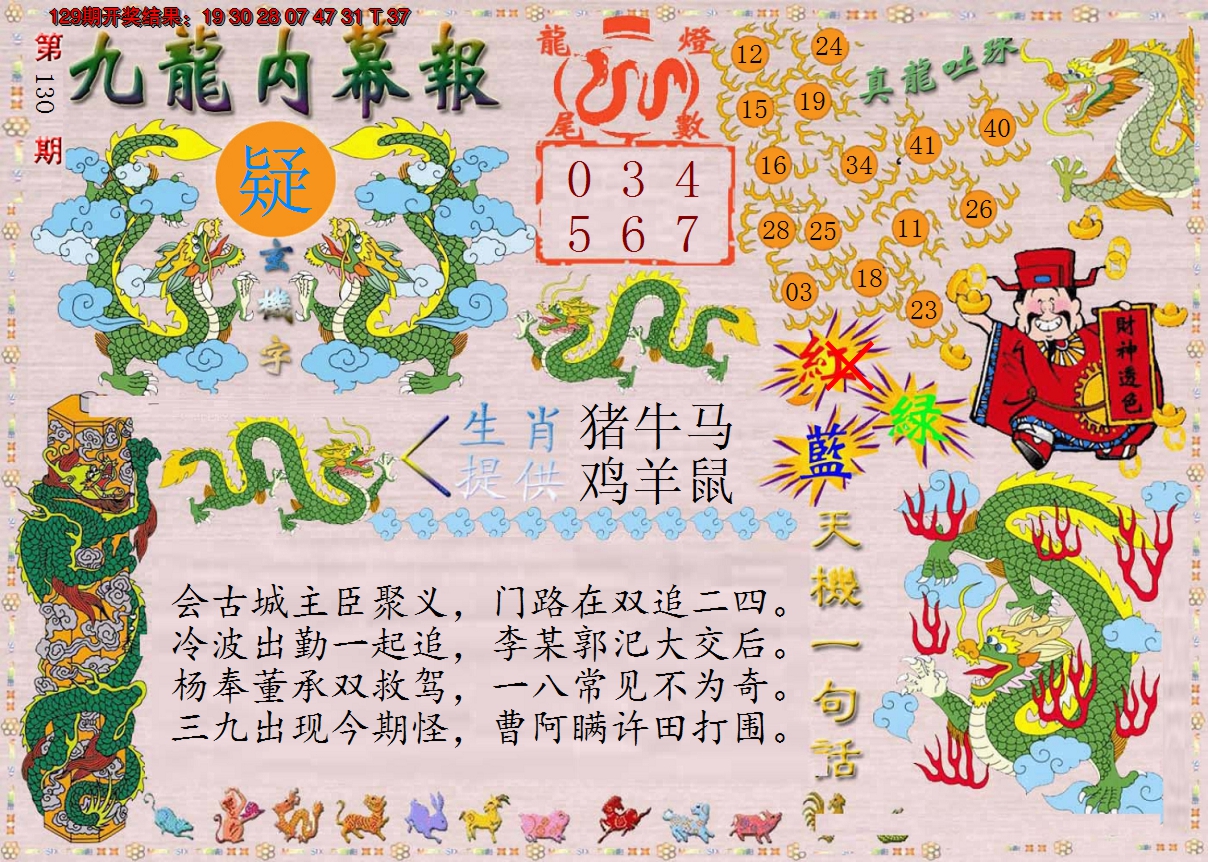 129期开奖结果：19 30 28 07 47 31 T 37
第130期
九龍内幕報
疑
玄機字
龍燈
尾數
0 3 4
5 6 7
真龍吐珠
12 24
15 19
16 34 41 40
28 25 11 26
03 18 23
紅
綠
藍
財神透色
生肖 猪牛马
提供 鸡羊鼠
天機一句話
会古城主臣聚义，门路在双追二四。
冷波出勤一起追，李某郭汜大交后。
杨奉董承双救驾，一八常见不为奇。
三九出现今期怪，曹阿瞒许田打围。